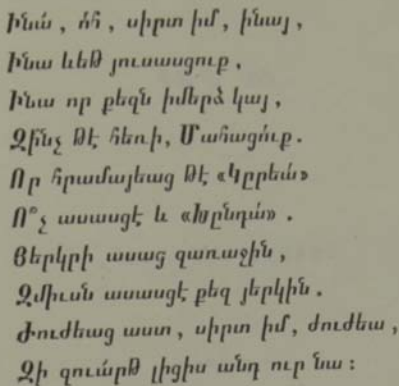 Ինա՛, ո՛հ, սիրտ իմ, ինայ,
Ինա ևեթ յուսասցուք,
Ինա որ քեզն իմերձ կայ,
Զի՛նչ թէ հեռի, Մահացո՛ւք.
Որ հրամայեաց թէ «Կըրեա՛»
Ո՞չ ասասցէ և «Խընդա՛».
Յերկրի ասաց զառաջին,
Զմիւսն ասասցէ քեզ յերկին.
Ժուժեաց աստ, սիրտ իմ, ժուժեա,
Զի զուա՛րթ լիցիս անդ ուր նա։